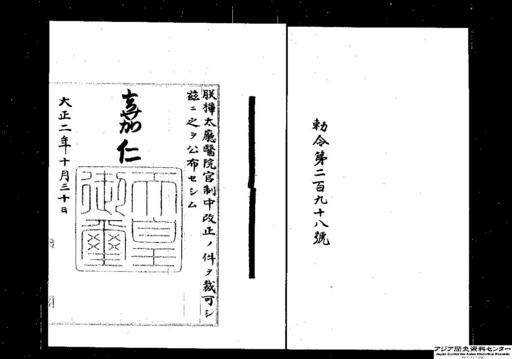 勅令第二百九十八號
朕樺太廳醫院官制中改正ノ件ヲ裁可シ
茲ニ之ヲ公布セシム
嘉仁
天皇御璽
大正二年十月三十日
アジア歴史資料センター
Japan Center for Asian Historical Records